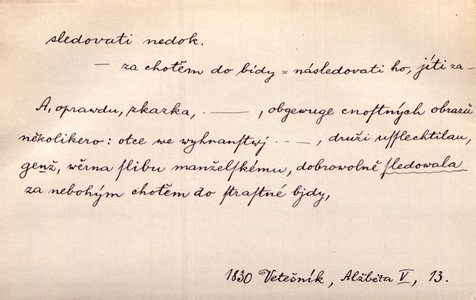 sledovati nedok.
— za chotěm do bídy = následovati ho, jíti za-
A, oprawdu, zkazka, . —— , obgewuge cnostných obrazů
několikero: otce we wyhnanstwj . - —, druži ussflechtilau,
genž, wěrna slibu manželskému, dobrowolně sledowala
za nebohým chotěm do strastné bjdy,
1830 Vetešník, Alžběta V, 13.